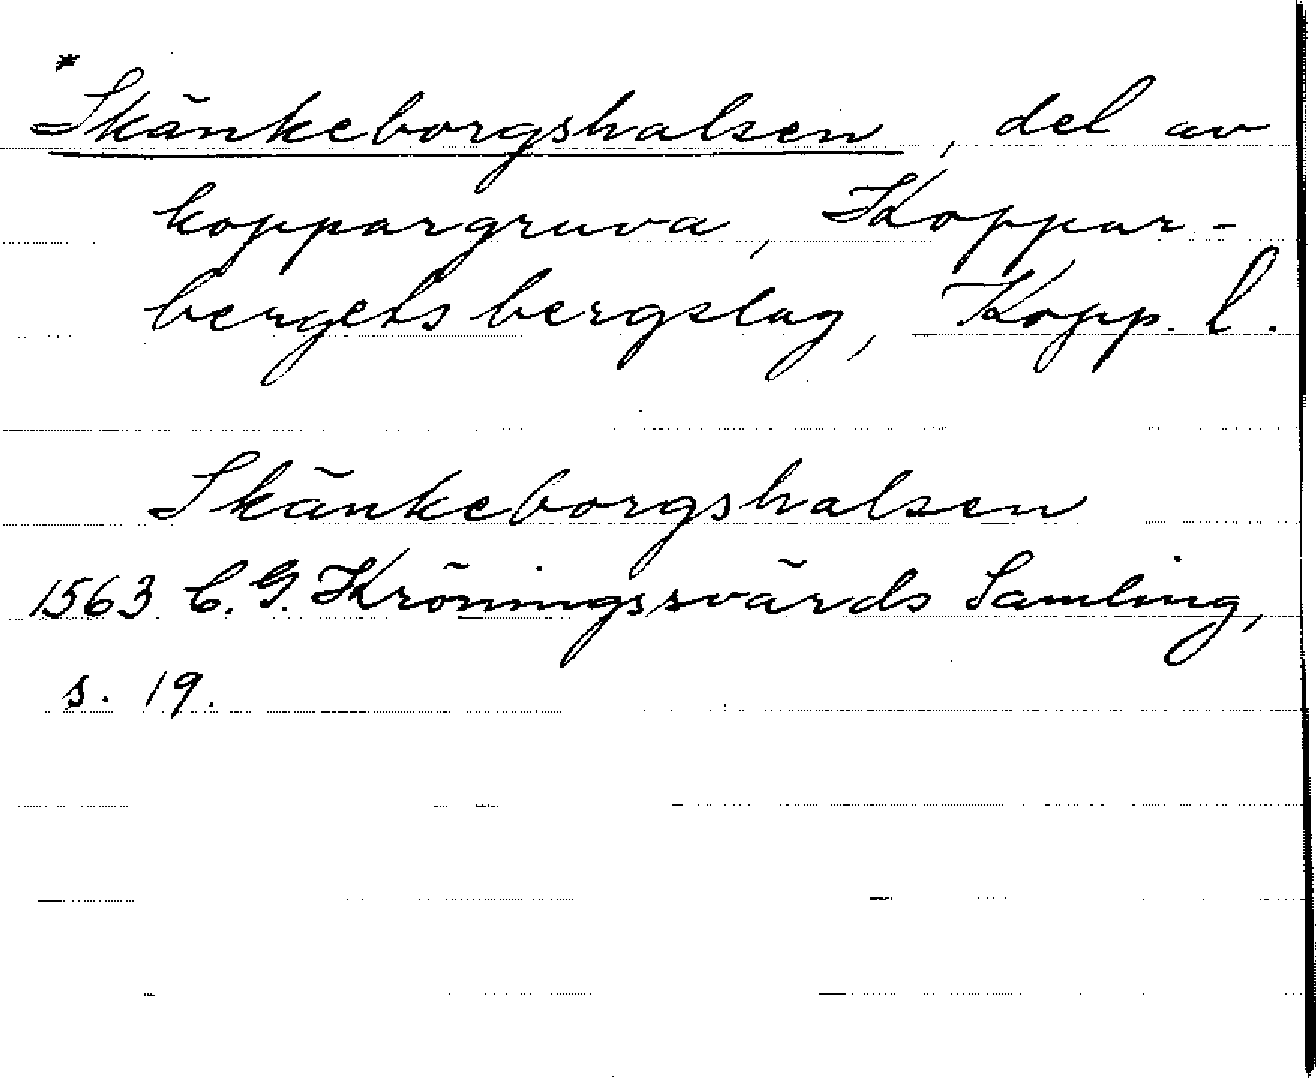 *
Skänkeborgshalsen, del av
koppargruva, Koppar-
bergets bergslag, Kopp. l.
Skänkeborgshalsen
1563 C. G. Kröningssvärds Samling,
s. 19.